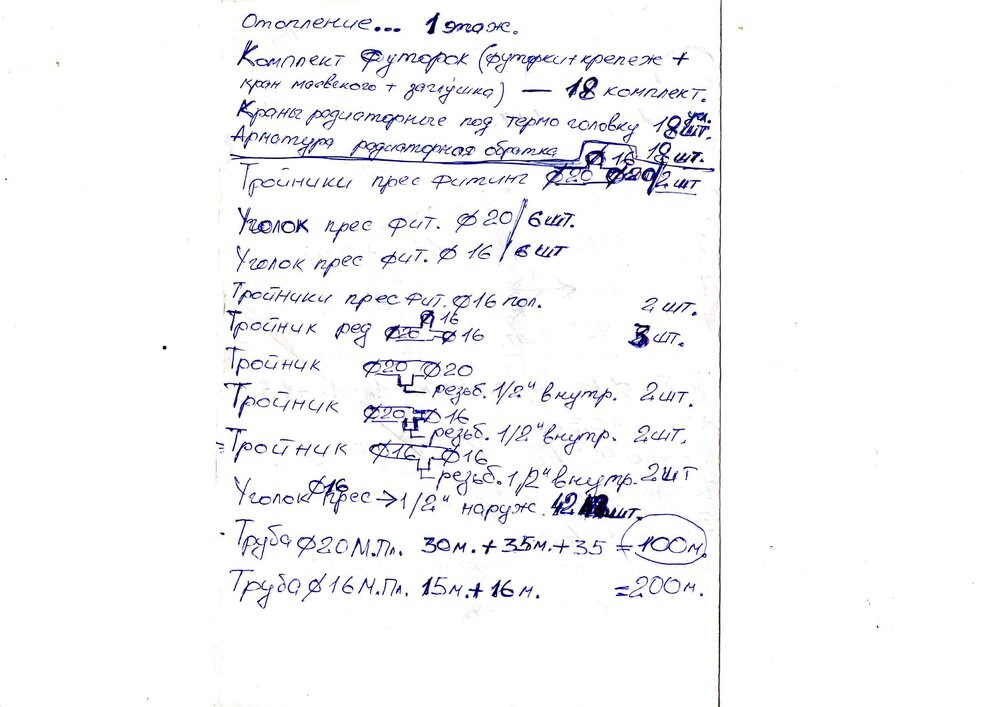 Отопление... 1 этаж.
Комплект Футорок (футорки+крепеж +
кран маевского + заглушка) — 18 комплект.
Краны радиаторные под термо головку 18 шт.
Арматура радиаторная обратка 18 шт.
Ø16
Тройники прес фитинг Ø20 Ø20/2 шт
Уголок прес фит. Ø20/6 шт.
Уголок прес фит. Ø16/6 шт
Тройники прес фит. Ø16 пол. 2 шт.
Ø16
Тройник ред Ø20 Ø16 3 шт.
Тройник Ø20 Ø20
резьб. 1/2" внутр. 2 шт.
Тройник Ø20 Ø16
резьб. 1/2" внутр. 2 шт.
Тройник Ø16 Ø16
резьб. 1/2" внутр. 2 шт
Ø16
Уголок прес → 1/2" наруж. 42 шт.
Труба Ø20 М.Пл. 30м. + 35м. + 35 = 100м.
Труба Ø16 М.Пл. 15м. + 16м. = 200м.